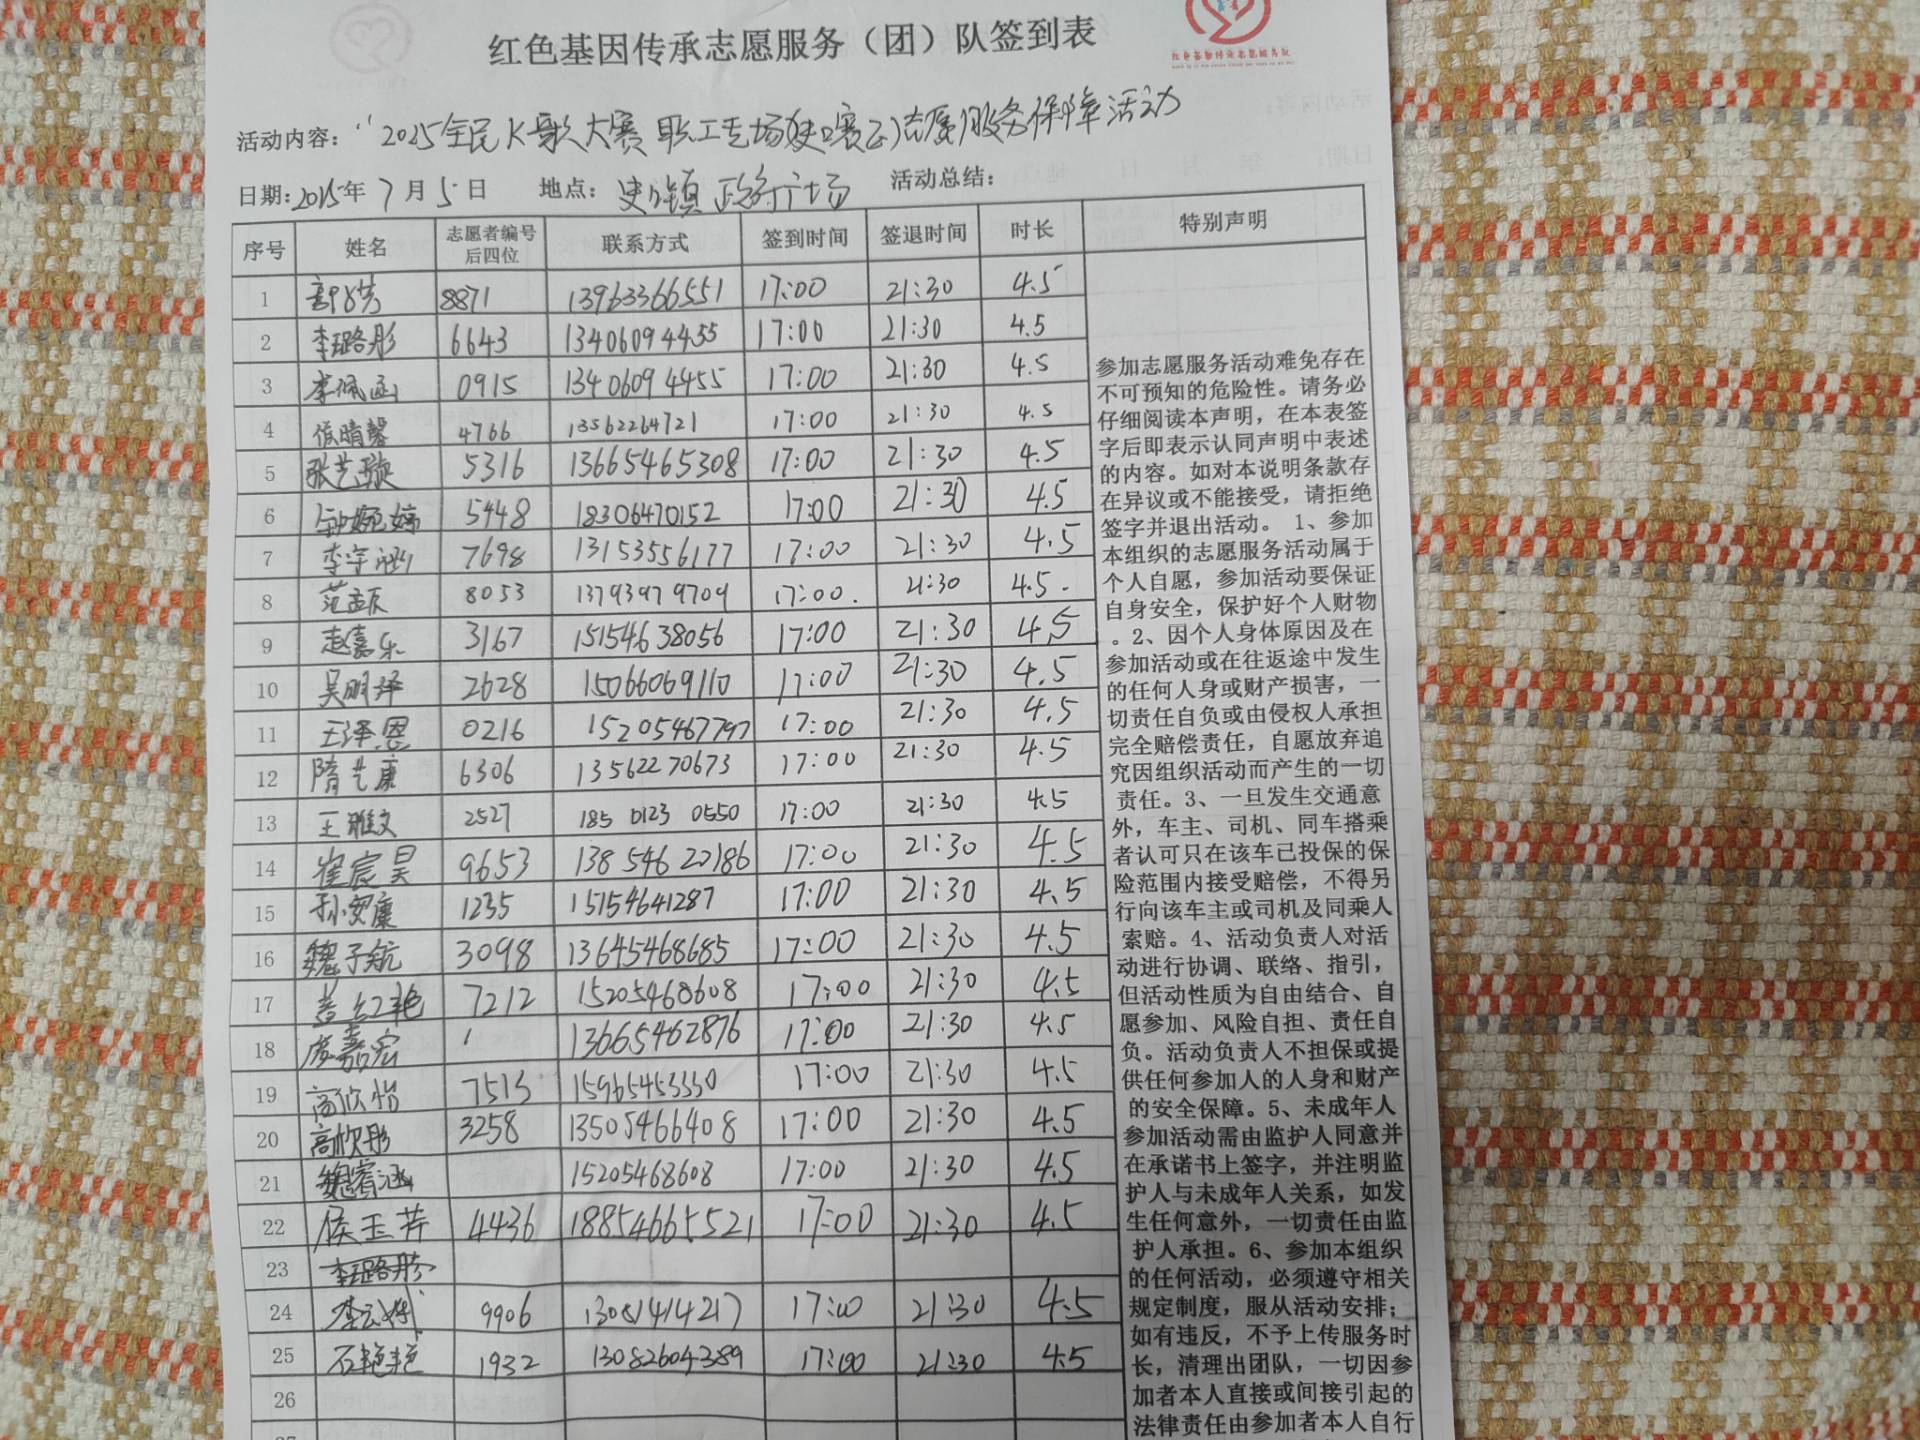 红色基因传承志愿服务（团）队签到表
活动内容：“2025全民K歌大赛职工专场史口赛区”志愿服务保障活动
日期：2025年7月5日 地点：史口镇政府广场 活动总结：
序号 姓名 志愿者编号后四位 联系方式 签到时间 签退时间 时长 特别声明
1 8871 13963366551 17:00 21:30 4.5
2 李璐彤 6643 13406094455 17:00 21:30 4.5
3 李佩函 0915 13406094455 17:00 21:30 4.5
4 侯晴馨 4766 13562264721 17:00 21:30 4.5
5 张艺璇 5316 13665465308 17:00 21:30 4.5
6 钟婉婷 5448 18306470152 17:00 21:30 4.5
7 李宇涵 7698 13153556177 17:00 21:30 4.5
8 范孟辰 8053 13793979709 17:00. 21:30 4.5.
9 赵嘉乐 3167 15154638056 17:00 21:30 4.5
10 吴明泽 2628 15066069110 17:00 21:30 4.5
11 王泽恩 0216 15205467797 17:00 21:30 4.5
12 隋艺康 6306 13562270673 17:00 21:30 4.5
13 王雅文 2527 185 0123 0550 17:00 21:30 4.5
14 崔宸昊 9653 13854622186 17:00 21:30 4.5
15 孙安康 1235 15154641287 17:00 21:30 4.5
16 魏子航 3098 13645468685 17:00 21:30 4.5
17 姜红艳 7212 15205468608 17:00 21:30 4.5
18 庞嘉宏 13665462876 17:00 21:30 4.5
19 高欣怡 7513 15965453330 17:00 21:30 4.5
20 高欣彤 3258 13505466408 17:00 21:30 4.5
21 魏睿涵 15205468608 17:00 21:30 4.5
22 侯玉芹 4436 18854665521 17:00 21:30 4.5
23 李璐彤
24 9906 13081414217 17:00 21:30 4.5
25 石艳艳 1932 13082604389 17:00 21:30 4.5
26
参加志愿服务活动难免存在
不可预知的危险性。请务必
仔细阅读本声明，在本表签
字后即表示认同声明中表述
的内容。如对本说明条款存
在异议或不能接受，请拒绝
签字并退出活动。 1、参加
本组织的志愿服务活动属于
个人自愿，参加活动要保证
自身安全，保护好个人财物
。2、因个人身体原因及在
参加活动或在往返途中发生
的任何人身或财产损害，一
切责任自负或由侵权人承担
完全赔偿责任，自愿放弃追
究因组织活动而产生的一切
责任。3、一旦发生交通意
外，车主、司机、同车搭乘
者认可只在该车已投保的保
险范围内接受赔偿，不得另
行向该车主或司机及同乘人
索赔。4、活动负责人对活
动进行协调、联络、指引，
但活动性质为自由结合、自
愿参加、风险自担、责任自
负。活动负责人不担保或提
供任何参加人的人身和财产
的安全保障。5、未成年人
参加活动需由监护人同意并
在承诺书上签字，并注明监
护人与未成年人关系，如发
生任何意外，一切责任由监
护人承担。6、参加本组织
的任何活动，必须遵守相关
规定制度，服从活动安排；
如有违反，不予上传服务时
长，清理出团队，一切因参
加者本人直接或间接引起的
法律责任由参加者本人自行